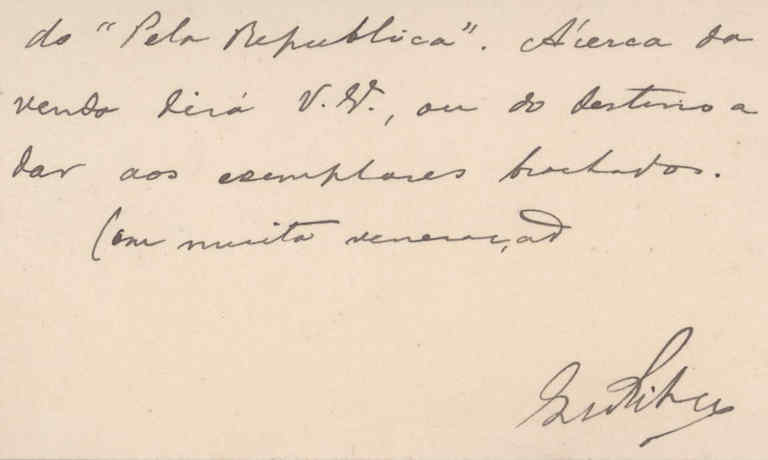 do "Pela Republica". Ácerca da
venda dirá V. , ou do destino a
dar aos exemplares brochados.
Com muita veneração